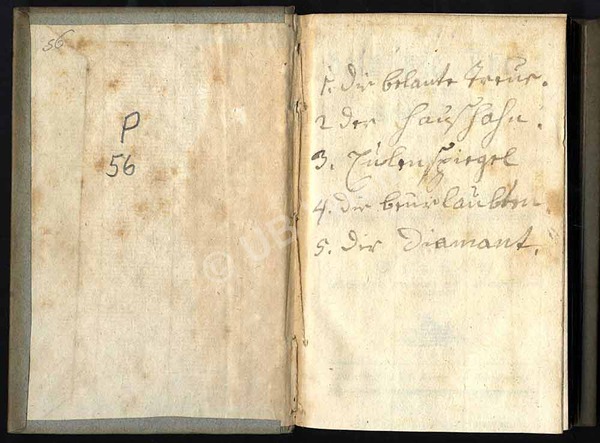 56
P
56
1. die belante Treue.
2 der Haushahn.
3. Eulenspiegel
4. die beurlaubten.
5. der Diamant.
© UB